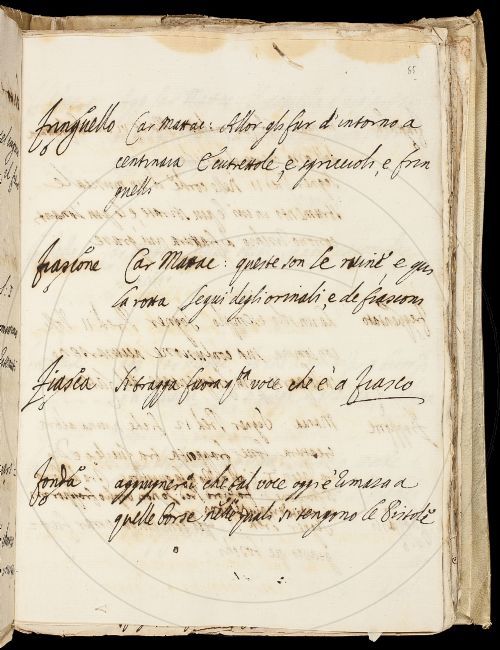 65
fringuello Car Mattac: Allor gli fur d'intorno a
centinaia Cutrettole, e sgriccioli, e frin
guelli
fiascone Car Mattac: queste son le ruine, e qui
la rotta segui degli orinali, e de fiasconi
fiasca Si tragga fuora q.ta voce che è a fiasco
fonda aggiugnerei che tal voce oggi è rimasa a
quelle borse nelle quali si tengono le Pistole